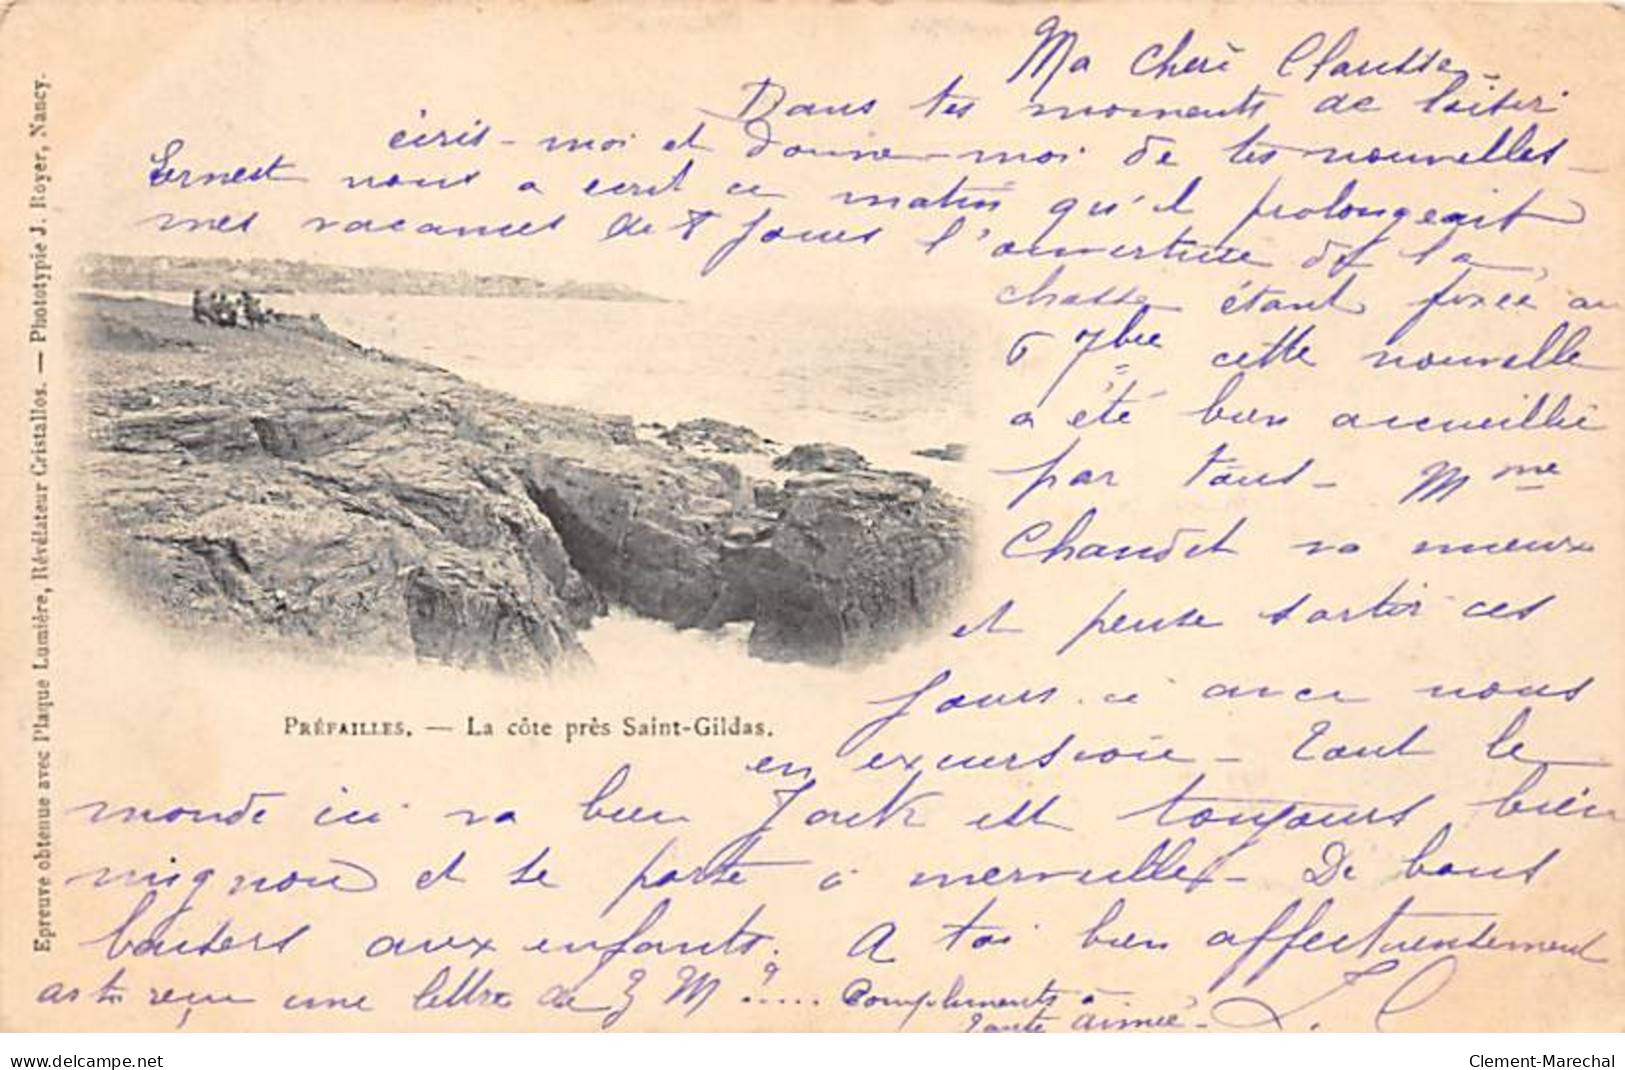 Ma chère Clausse
Dans tes moments de loisir
écris-moi et donne-moi de tes nouvelles -
Ernest nous a écrit ce matin qu'il prolongeait
mes vacances de 8 jours l'ouverture de la
chasse étant fixée au
6 7bre cette nouvelle
a été bien accueillie
par tous - Mme
Chaudet va mieux
et pense sortir ces
jours-ci avec nous
en excursion - Tout le
monde ici va bien Jack est toujours bien
mignon et se porte à merveille - De bons
baisers aux enfants. A toi bien affectueusement
as tu reçu une lettre de M ? ..... Compliments à
Tante Aimée -
PRÉFAILLES. — La côte près Saint-Gildas.
Epreuve obtenue avec Plaque Lumière, Révélateur Cristallos. — Phototypie J. Royer, Nancy.
delcampe.net
Clement-Marechal